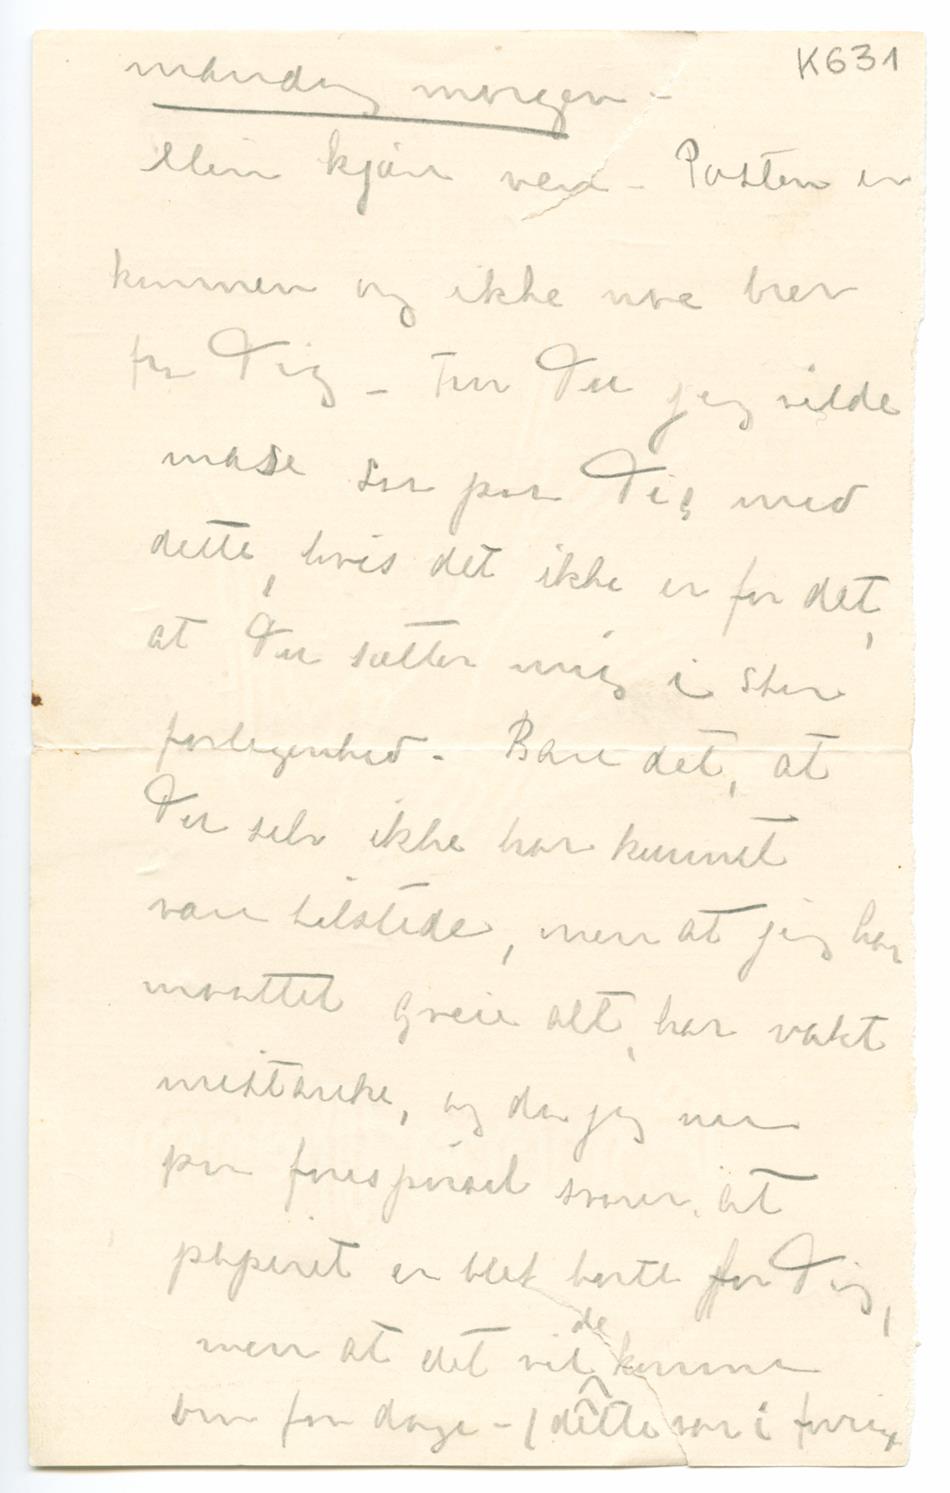 K631
mandag morgen -
Min kjære ven - Posten er
kommen og ikke noe brev
fra Dig - Tror Du jeg vilde
mase saa paa Dig med
dette, hvis det ikke er for det,
at Du sætter mig i stor
forlegenhed - Bare det, at
Du selv ikke har kunnet
være tilstede, men at jeg har
maattet greie alt, har vakt
mistanke, og da jeg nu
paa forespørsel svarer, at
papiret er blet borte for Dig,
men at det vilde komme
om faa dage - (dette var i forrige